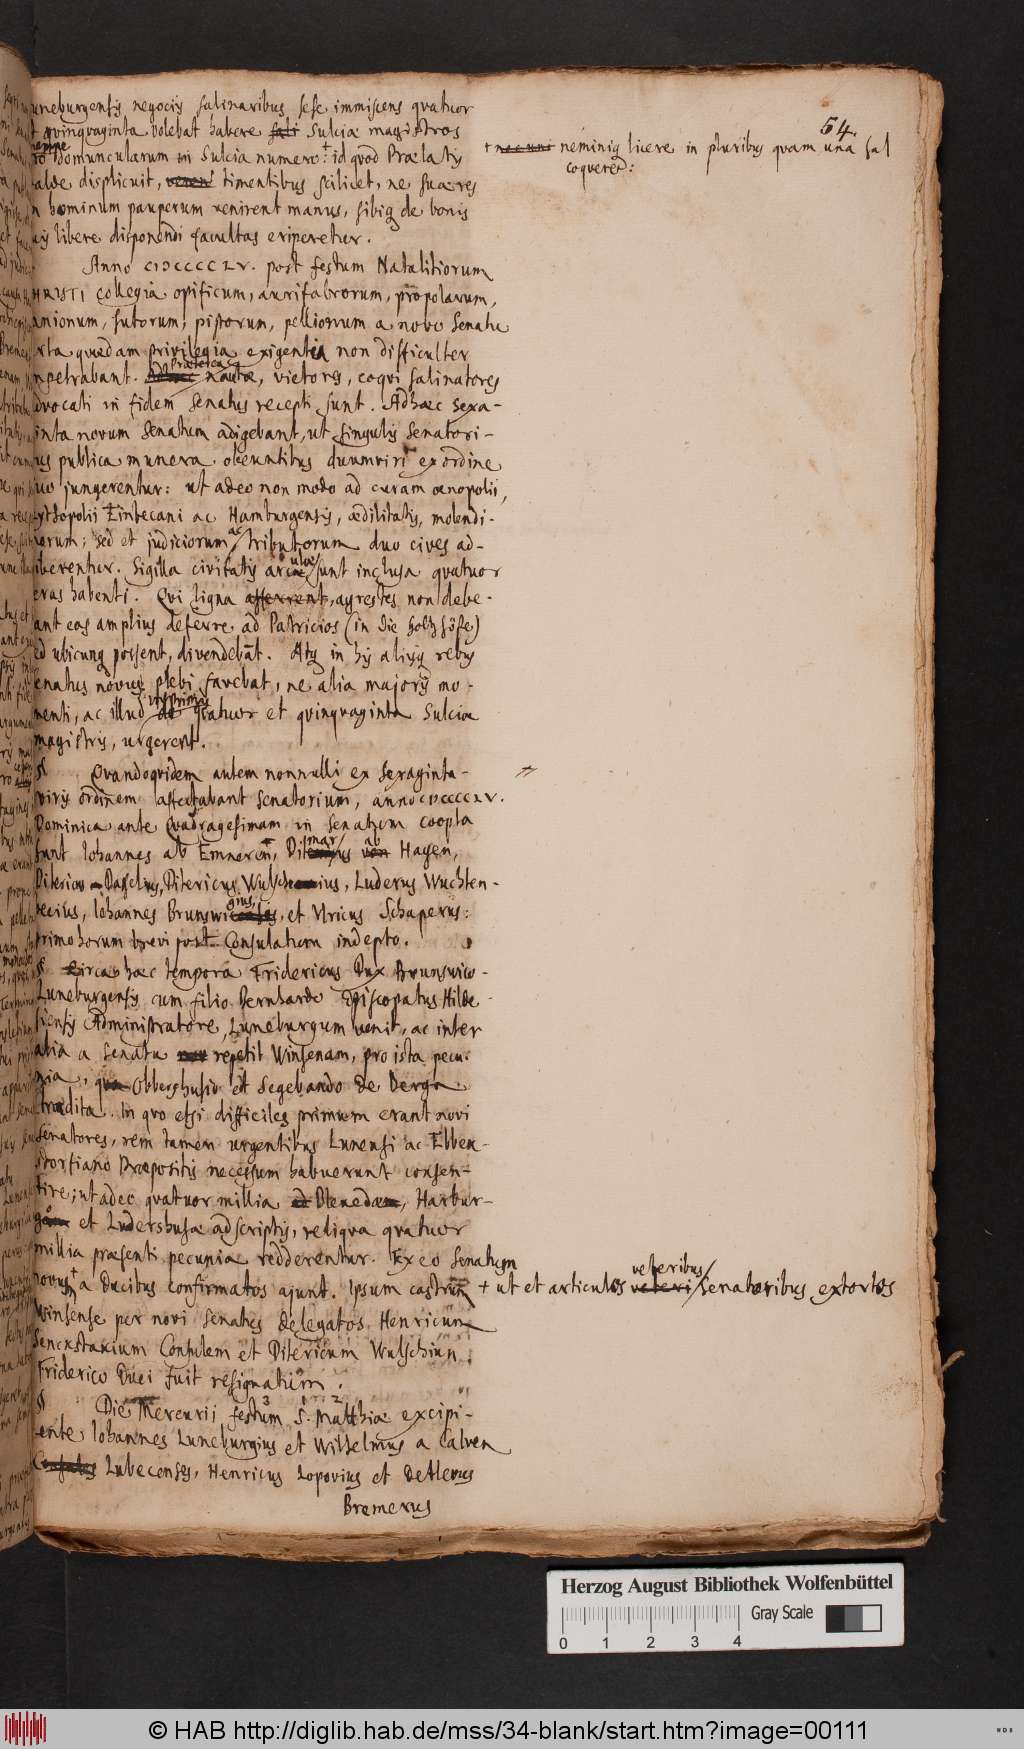 54
uneburgensis negociis salinaribus sese immiscens qvatuor
qvinqvaginta volebat habere sali Sulciæ magistros
pro Domuncularum in Sulcia numero: + id qvod Prælatis
valde displicuit, timentibus scilicet, ne suæ res
in hominum pauperum venirent manus, sibiq de bonis
suis libere disponendi facultas eriperetur.
+ neminis licere in pluribus quam una sal
coqveret:
Anno CIƆCCCCLV. post festum Natalitiorum
HRISTI collegia opificum, aurifabrorum, propolarum,
lanionum, sutorum, pistorum, pellionum a novo Senatu
qvædam privilegia exigentia non difficulter
mpetrabant. præterea nautæ, vietores, coqvi salinatores
dvocati in fidem Senatus recepti sunt. Ad hæc sexa-
ginta novum Senatum adigebant, ut singulis Senatori-
us publica munera obeuntibus duumviri ex ordine
suo jungerentur: ut adeo non modo ad curam œnopolii,
zythopolii Einbecani ac Hamburgensis, ædilitatis, molendi-
narum; sed et judiciorum ac tributorum duo cives ad-
hiberentur. Sigilla civitatis arcæ sunt inclusa qvatuor
seras habenti. Qvi ligna afferrent, agrestes non debe-
ant eas amplius deferre ad Patricios (in die holtzhöfe)
sed ubicunq possent, divendebāt. Atq in his aliisq rebus
Senatus novus plebi favebat, ne alia majoris mo-
menti, ac illud de qvatuor et qvinqvaginta Sulciæ
magistris, urgerent.
§ Qvandoqvidem autem nonnulli ex sexaginta-
viris ordinem affectabant Senatorium, anno CIƆCCCCLV.
Dominica ante Qvadragesimam in Senatum coopta
sunt Iohannes ab Emneren, Ditmarus ab von Hagen,
Ditericus Dasselius, Ditericus Wulschenius, Luderus Wuchten-
becius, Iohannes Brunswigius, et Ulricus Schaperus:
primo horum brevi post Consulatum indepto.
§ Circa hæc tempora Fridericus Dux Brunswico-
Luneburgensis cum filio Bernhardo Episcopatus Hilde-
siensis Administratore, Luneburgum venit, ac inter
alia a Senatu repetit Winsenam, pro ista pecu-
nia, qva Obbershusio et Segebando de Berga
tradita. In qvo etsi difficiles primum erant novi
Senatores, rem tamen urgentibus Lunensi ac Ebben-
storfiano Præpositis necessum habuerunt consen-
tire; ut adeo qvatuor millia ad Blenedam, Harbur-
gam et Ludershusæ adscriptis, reliqva qvatuor
millia præsenti pecunia redderentur. Ex eo Senatum
novum + a Ducibus confirmatos ajunt. Ipsum castrum
+ ut et articulos veteri veteribus Senatoribus extortos
Winsense per novi Senatus delegatos Henricum
Sencstakium Consulem et Ditericum Wulschium
Friderico Duci fuit resignatum.
§ Die Mercurii festum S. Matthiæ excipi-
ente Iohannes Luneburgius et Wilhelmus a Calven
Consules Lubecenses, Henricus Lopovius et Detlevus
Bremerus
Herzog August Bibliothek Wolfenbüttel
Gray Scale
0 1 2 3 4
© HAB http://diglib.hab.de/mss/34-blank/start.htm?image=00111